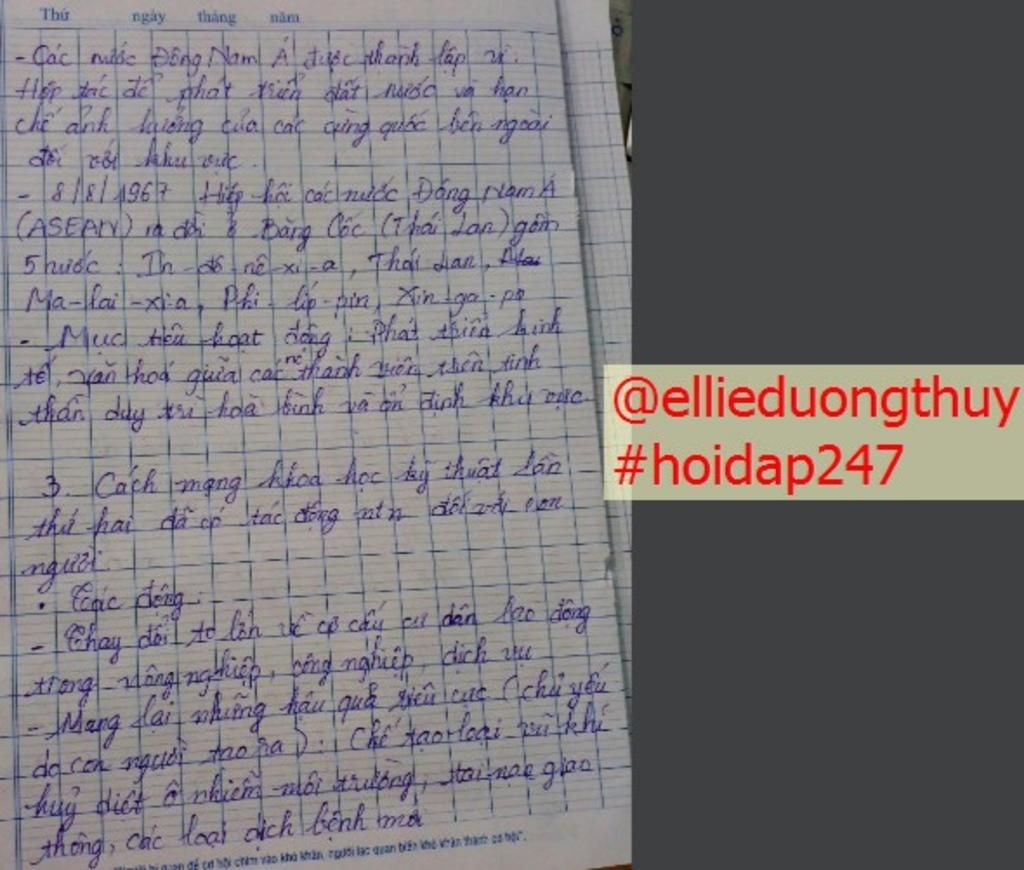 Thứ ngày tháng năm
- Các nước Đông Nam Á được thành lập vì.
Hợp tác để phát triển đất nước và hạn
chế ảnh hưởng của các cường quốc bên ngoài
đối với khu vực.
- 8/8/1967 Hiệp hội các nước Đông Nam Á
(ASEAN) ra đời ở Băng Cốc (Thái Lan) gồm
5 nước : In-đô nê-xi-a, Thái Lan,
Ma-lai-xi-a, Phi-lip-pin, Xin-ga-po
- Mục tiêu hoạt động : Phát triển kinh
tế, văn hoá giữa các nc thành viên trên tinh
thần duy trì hoà bình và ổn định khu vực.
3. Cách mạng khoa học kỹ thuật lần
thứ hai đã có tác động ntn đối với con
người.
• Tác động:
- Thay đổi to lớn về cơ cấu cư dân lao động
trong nông nghiệp, công nghiệp, dịch vụ
- Mang lại những hậu quả tiêu cực (chủ yếu
do con người tạo ra) : Chế tạo loại vũ khí
huỷ diệt ô nhiễm môi trường, tai nạn giao
thông, các loại dịch bệnh mới
để cơ hội chìm vào khó khăn, người lạc quan biến khó khăn thành cơ hội".
@ellieduongthuy
#hoidap247